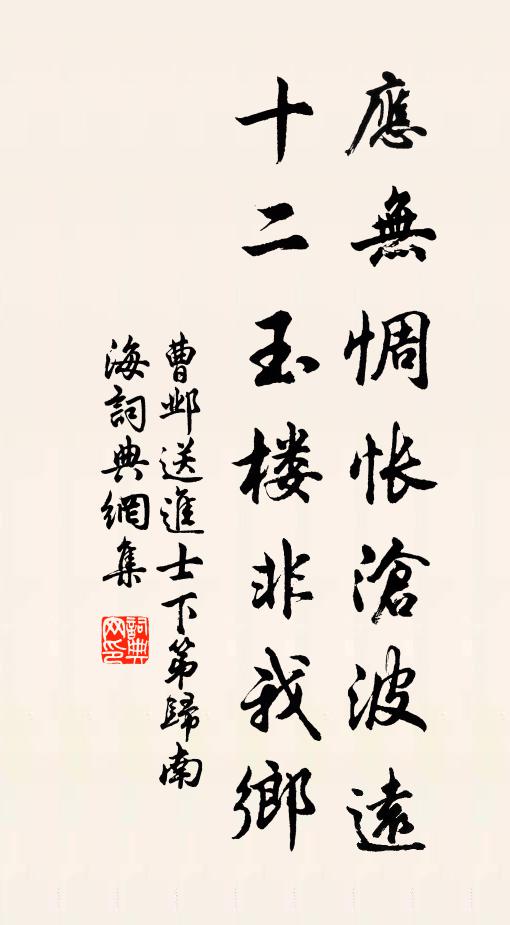 應無惆悵滄波遠
十二玉楼非我鄉
曹邺送進士下第歸南
海詞典網集
詞典
网印